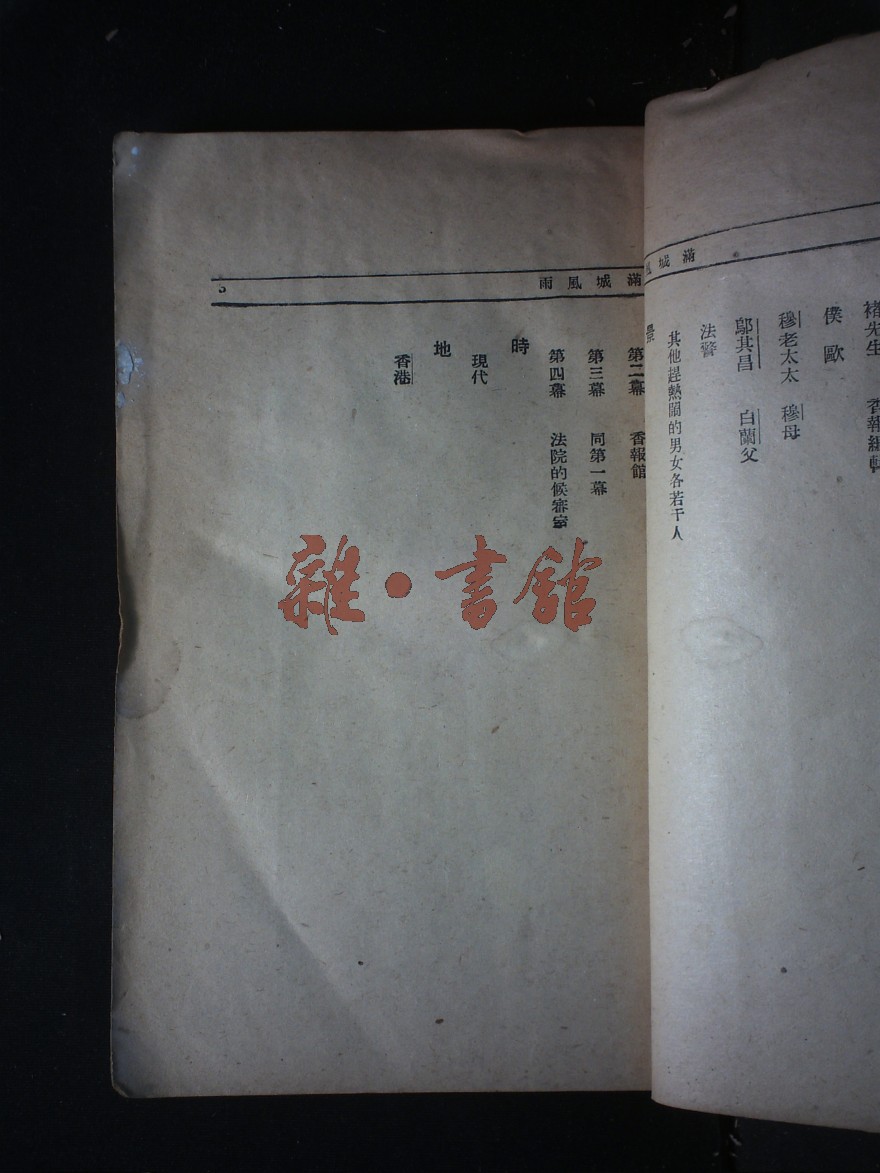 滿城風
褚先生　香報編輯
僕歐
穆老太太　穆母
鄔其昌　白蘭父
法警
其他趕熱鬧的男女各若干人
景
滿城風雨
3
第二幕　香報館
第三幕　同第一幕
第四幕　法院的候審室
時
現代
地
香港
雜·書館